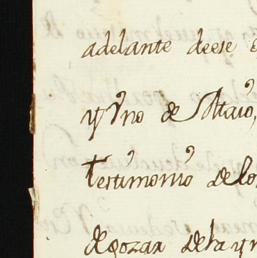 adelante deese
y Vno de Mtaio,
testimonio de lo
de gozar de la yn